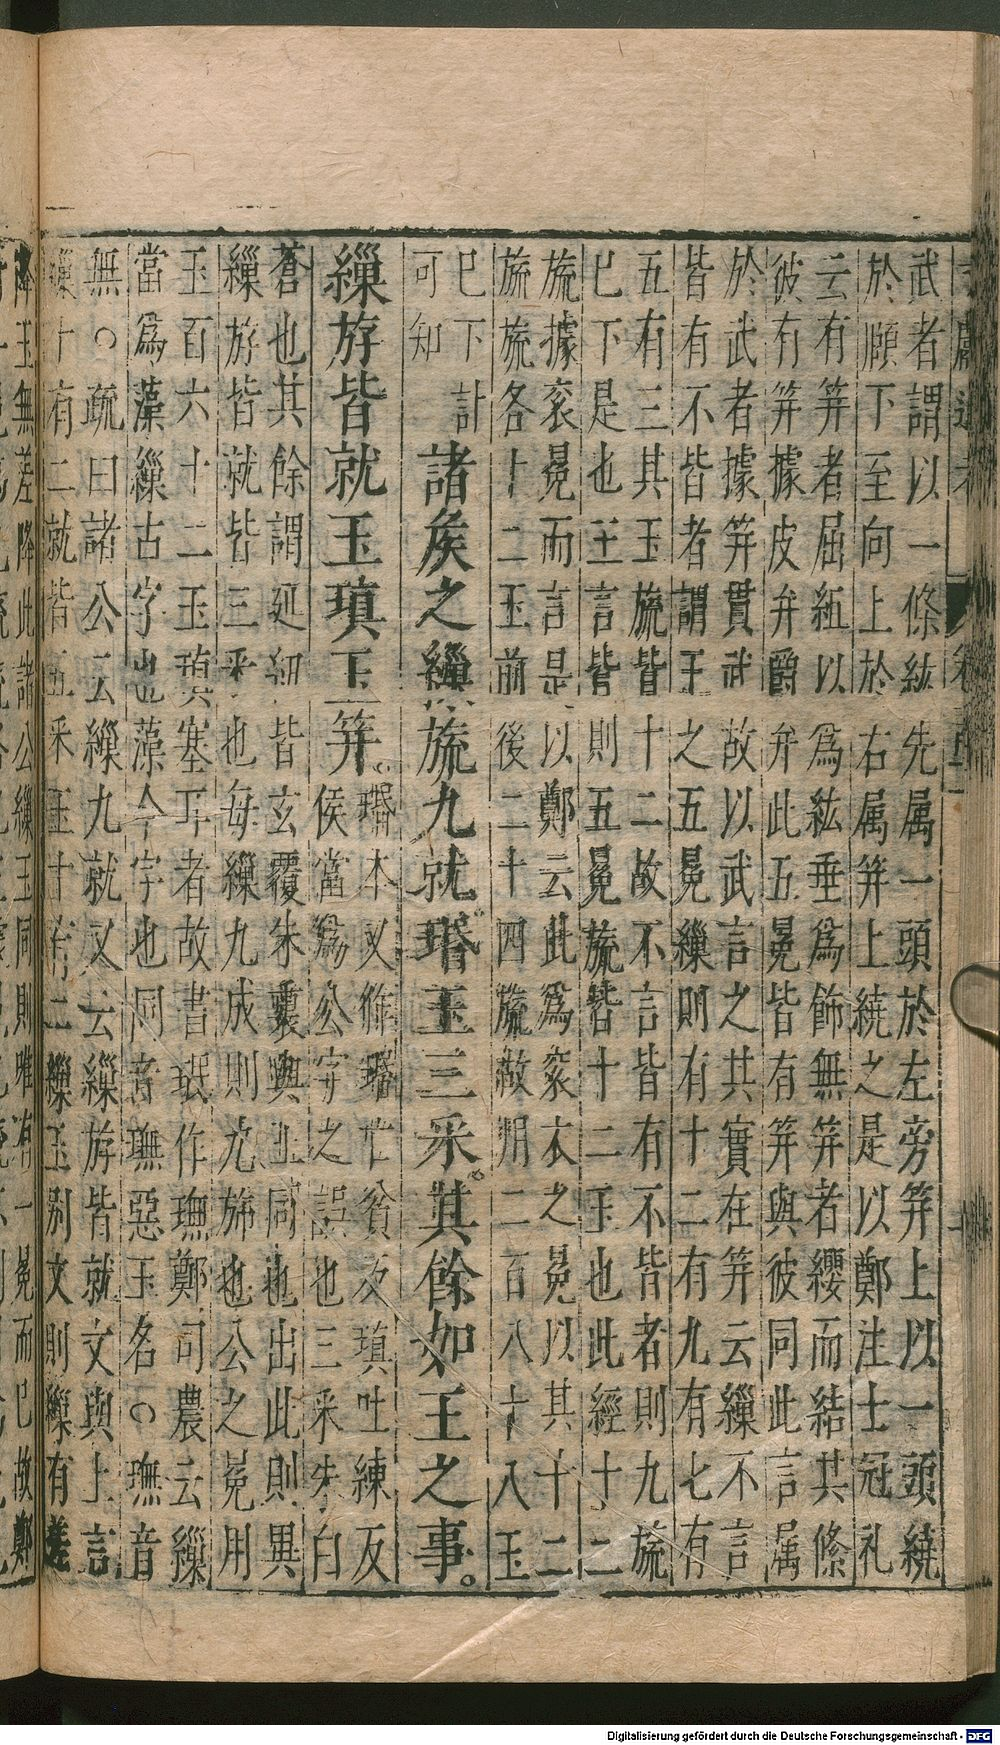 武者謂以一條紘先属一頭於左旁笄上以一頭繞
於頤下至向上於右属笄上繞之是以鄭注士冠礼
云有笄者屈組以為紘垂為飾無笄者纓而結其絛
彼有笄據皮弁爵弁此五冕皆有笄與彼同此言属
於武者據笄貫武故以武言之其實在笄云繅不言
皆有不皆者謂王之五冕繅則有十二有九有七有
五有三其玉旒皆十二故不言皆有不皆者則九旒
已下是也王言皆則五冕旒皆十二玉也此經十二
旒據衮冕而言是以鄭云此為衮衣之冕以其十二
旒旒各十二玉前後二十四旒故用二百八十八玉
已下計
可知
諸矦之繅旒九就瑉玉三采其餘如王之事。
繅斿皆就玉瑱玉笄。
瑉本又作亡貧反瑱吐練反
侯當為公字之誤也三采朱白
蒼也其餘謂延紐皆玄覆朱裏與王同也出此則異
繅斿皆就皆三采也每繅九成則九旒也公之冕用
玉百六十二玉瑱塞耳者故書珉作璑鄭司農云繅
當為藻繅古字也藻今字也同音璑惡玉名○璑音
無○疏曰諸公云繅九就又云繅斿皆就文與上言
繅十有二就皆五采玉十有二繅玉別文則繅有差
降玉無差降此諸公繅玉同則唯有一冕而已故鄭
Digitalisierung gefördert durch die Deutsche Forschungsgemeinschaft - DFG